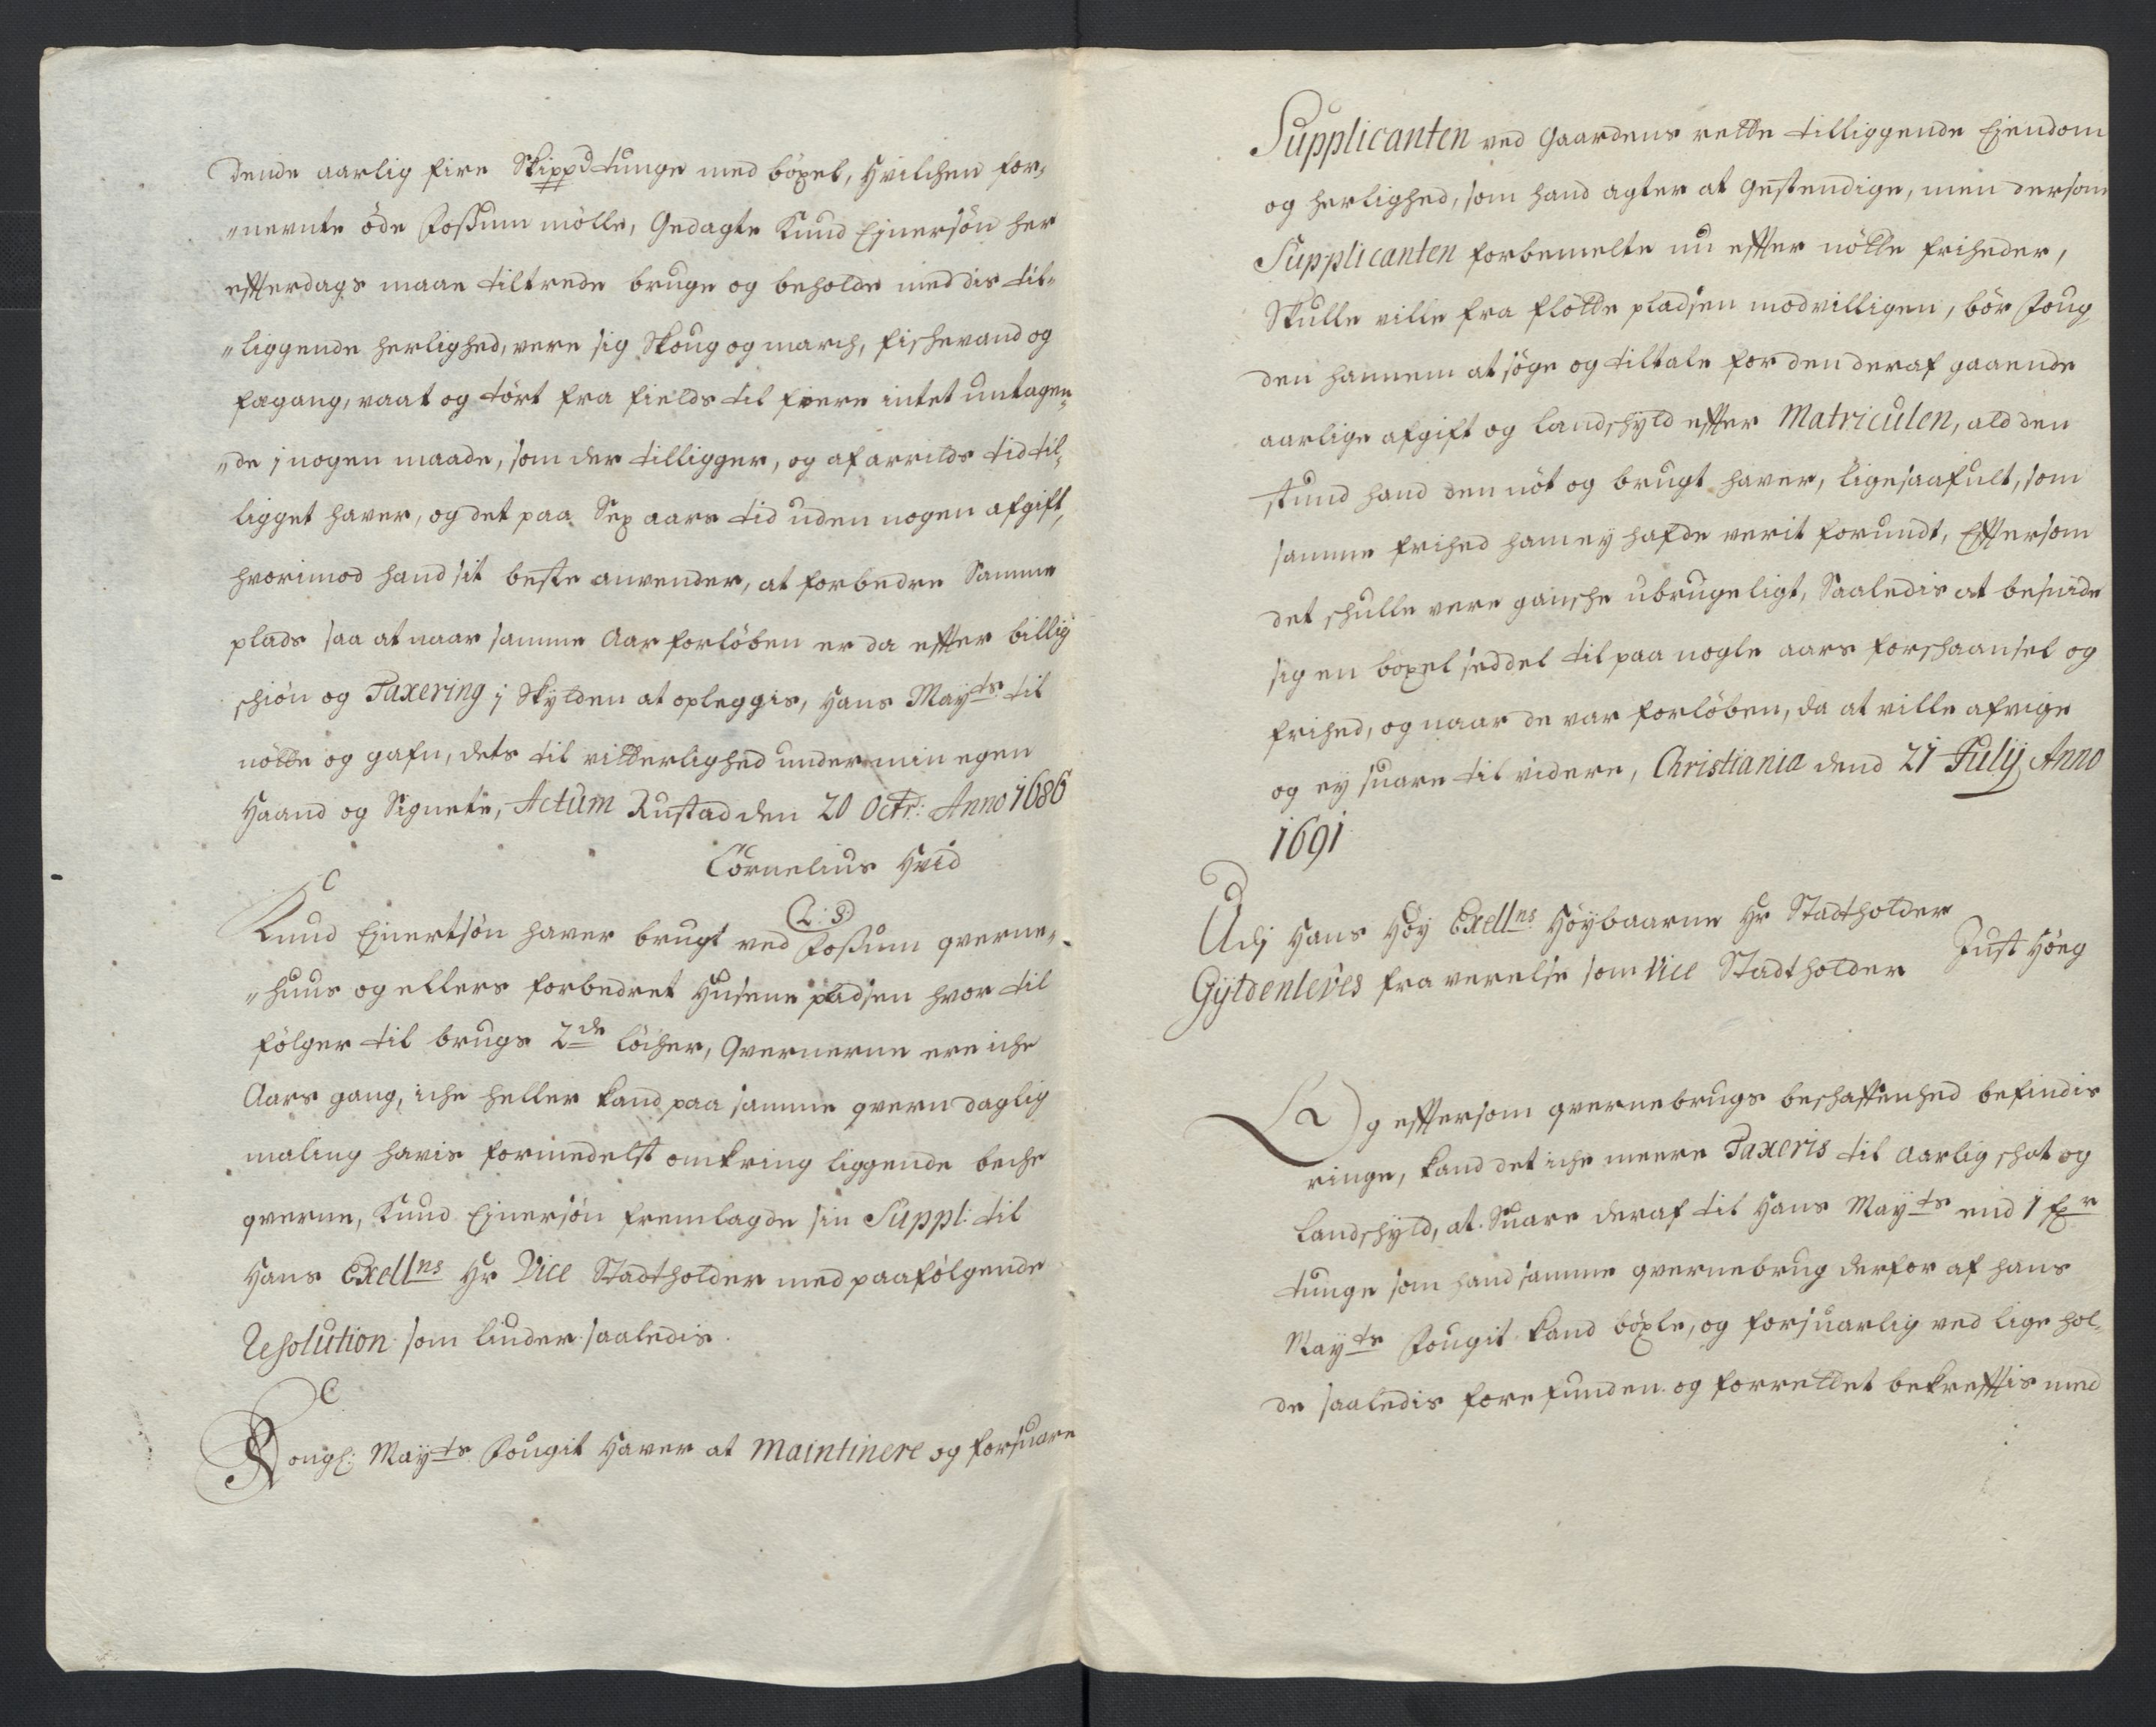 dende aarlig fire Skippd tunge med böxel, Hvilchen for,
"nevnte öde Foßum mölle, Gedagte Knud Ejnersön her
effterdags maae tiltrede bruge og beholde med dis til-
"liggende herlighed, vere sig Skoug og march, fischevand og
fægang, vaat og tört fra fields til fiere intet untagen,
"de j nogen maade, som der tilligger, og af arrilds tid til,
ligget haver, og det paa Sex aars tid uden nogen afgift,
hvorimod hand sit beste anvender, at forbedre Samme
plads saa at naar samme Aar forlöben er da effter billig
schiön og Taxering j Skylden at opleggis, Hans Mayts til
nötte og gafn, dets til vitterlighed under min egen
Haand og Signete, Actum Rustad den 20 Octr: Anno 1686
Cornelius Hvid
L: S:
Knud Ejnertsön haver brugt ved Foßum qverne,
"huus og ellers forbedret Husene pladsen hvor til
fölger til brugs 2de löcher, Qvernerne ere iche
Aars gang, iche heller kand paa samme qvern daglig
maling havis formedelst omkring liggende beche
qverne, Knud Ejnersön fremlagde sin Suppl: til
Hans Exellns Hr Vice Stadtholder med paafölgende
Resolution som liuder saaledis.
Kongl: Mayts Fougit Haver at Maintinere og forsuare
Supplicanten ved Gaardens rette tilliggende Ejendom
og herlighed, som hand agter at gestendige, men dersom
Supplicanten forbemelte nu effter nötte friheder,
Skulle ville fra flötte pladsen modvilligen, bör Foug
den hannem at söge og tiltale for den deraf gaaende
aarlige afgift og landschyld effter Matriculen, ald den
stund hand den nöt og brugt haver, ligesaafult, som
samme frihed ham ey hafde verit forundt, Effersom
det schulle vere gansche ubrugeligt, Saaledis at besnide
sig en böxel seddel til paa nogle aars forschaansel og
frihed, og naar de var forlöben, da at ville afvige
og ey suare til videre, Christiania dend 21 Julij Anno
1691
Udj Hans Höy Exellns Höybaarne Hr Stadtholder
Gyldenleves fra verelse som Vice Stadtholder Just Höeg
Og efftersom qvernebrugs beschaffenhed befindis
ringe, kand det iche meere Taxeris til Aarlig schat og
landschyld, at Suare deraf til Hans Mayts end 1 fr
tunge som hand samme qvernebrug derfor af hans
Mayts Fougit kand böxle, og forsuarlig ved lige hol,
de saaledis forefunden og forrettet bekrefftis med